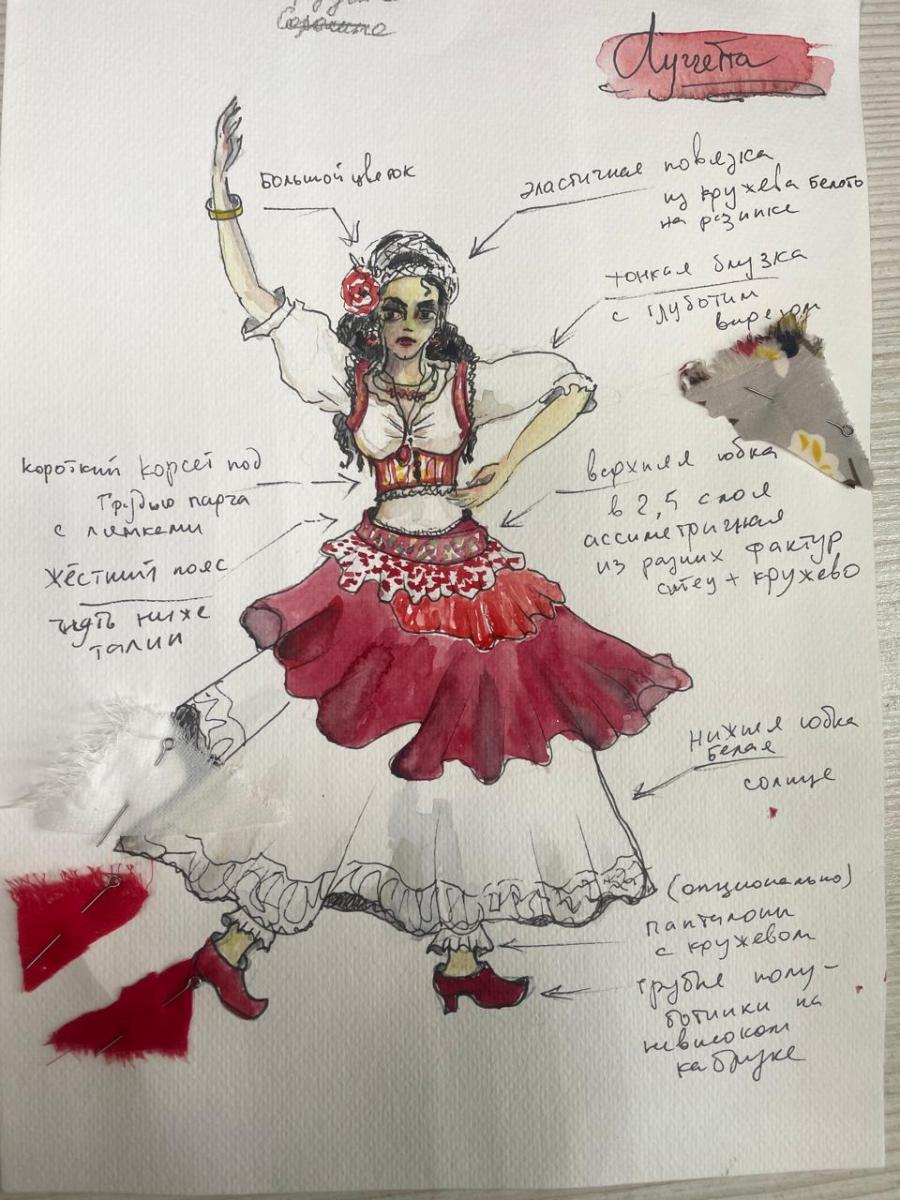 Сорокина
Лучетта
Большой цветок
эластичная повязка
из кружева белого
на резинке
тонкая блузка
с глубоким
вырезом
короткий корсет под
грудью парча
с лямками
жёсткий пояс
чуть ниже
талии
верхняя юбка
в 2,5 слоя
ассиметричная
из разных фактур
+ кружево
нижняя юбка
белая
солнце
(опционально)
панталоны
с кружевом
грубые полу-
ботинки на
невысоком
каблуке